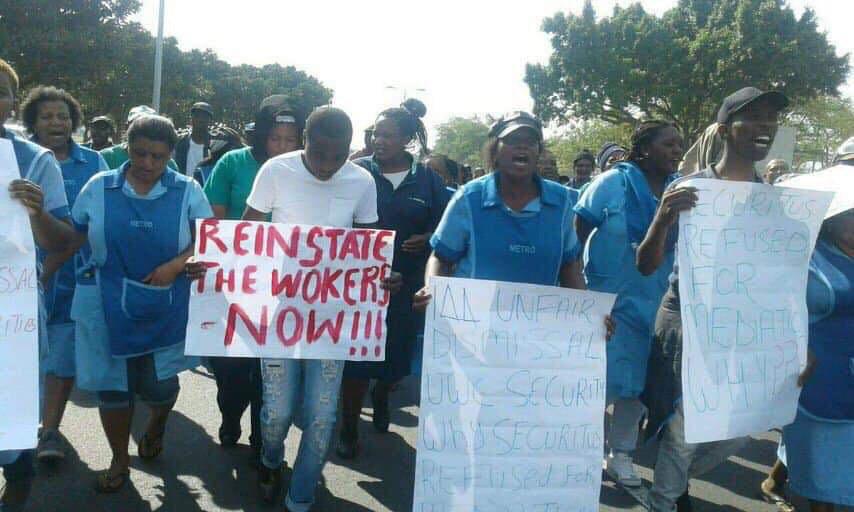 SAL
RITIB
METRO
REINSTATE
THE WOKERS
- NOW!!!
METRO
144 UNFAIR
DISMISSAL
UWC SECURITY
WHY SECURITUS
REFUSED FOR
SECURITUS
REFUSED
FOR
MEDIATIO
WHY??